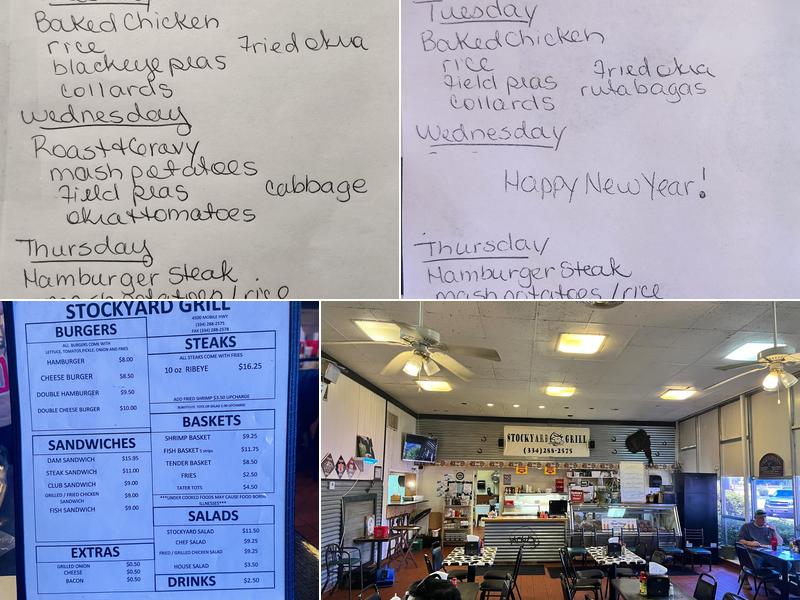 Baked Chicken
rice
Fried okra
blackeye peas
collards
Wednesday
Roast + Gravy
mash potatoes
Field peas
cabbage
okra + tomatoes
Thursday
Hamburger Steak
mash potatoes / rice
Tuesday
Baked Chicken
rice
Fried okra
Field peas
rutabagas
collards
Wednesday
Happy New Year!
Thursday
Hamburger Steak
mash potatoes / rice
STOCKYARD GRILL
4500 MOBILE HWY
(334) 288-2575
FAX (334) 288-2578
BURGERS
ALL BURGERS COME WITH
LETTUCE, TOMATO, PICKLE, ONION AND FRIES
HAMBURGER $8.00
CHEESE BURGER $8.50
DOUBLE HAMBURGER $9.50
DOUBLE CHEESE BURGER $10.00
SANDWICHES
DAM SANDWICH $15.95
STEAK SANDWICH $11.00
CLUB SANDWICH $9.00
GRILLED / FRIED CHICKEN SANDWICH $9.00
FISH SANDWICH $9.00
EXTRAS
GRILLED ONION $0.50
CHEESE $0.50
BACON $0.50
STEAKS
ALL STEAKS COME WITH FRIES
10 oz RIBEYE $16.25
ADD FRIED SHRIMP $3.50 UPCHARGE
SUBSTITUTE TOTS OR SALAD 1.00 UPCHARGE
BASKETS
SHRIMP BASKET $9.25
FISH BASKET 5 strips $11.75
TENDER BASKET $8.50
FRIES $2.50
TATER TOTS $4.50
***UNDER COOKED FOODS MAY CAUSE FOOD BORNE
ILLNESSES***
SALADS
STOCKYARD SALAD $11.50
CHEF SALAD $9.25
FRIED/GRILLED CHICKEN SALAD $9.25
HOUSE SALAD $3.50
DRINKS $2.50
STOCKYARD GRILL
(334)288-2575